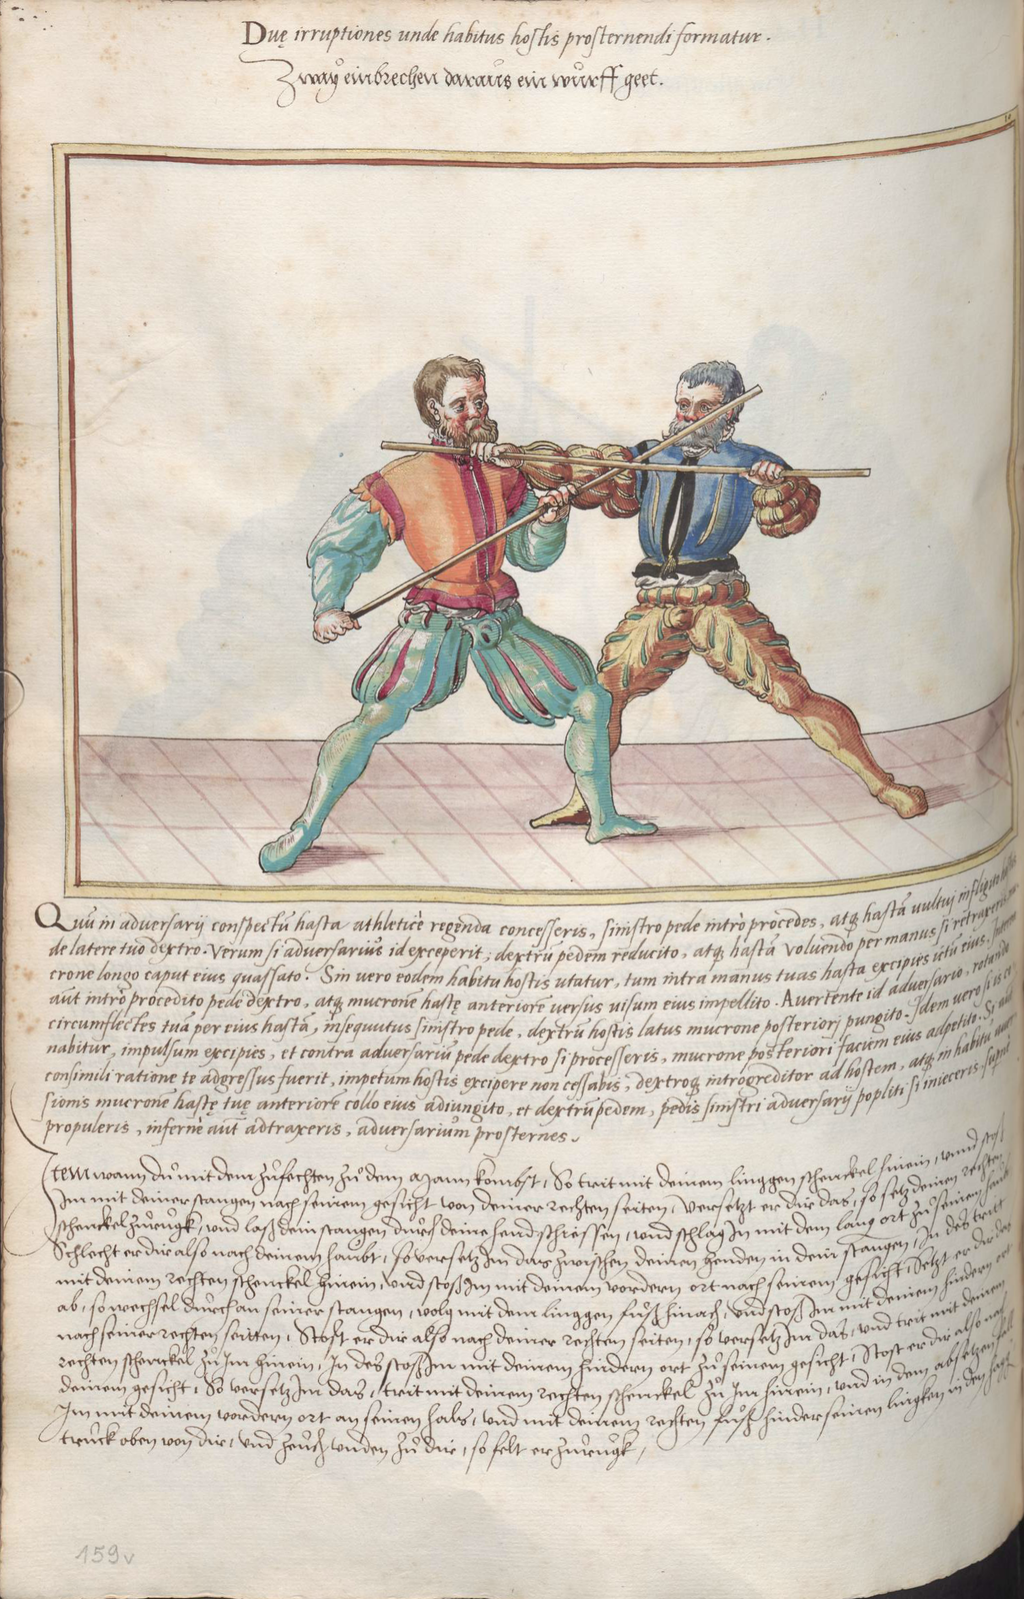 Duę irruptiones unde habitus hostis prosternendi formatur.
Zway einbrechen daraus ein wurff geet.
Quum in adversarij conspectū hasta athleticè regenda concesseris, sinistro pede intrò procedes, atq hastā vultui infligito
de latere tuo dextro. Verum si adversarius id exceperit, dextrū pedem reducito, atq hastā volvendo per manus si retraxeris,
crone longo caput eius quassato. Sin vero eodem habitu hostis utatur, tum intra manus tuas hasta excipies ictū eius.
aut intrò procedito pede dextro, atq mucrone hastę anteriore versus visum eius impellito. Avertente id adversario, rotando
circumflectes tuā per eius hastā, insequutus sinistro pede, dextrū hostis latus mucrone posteriori pungito. Idem vero si is co
nabitur, impulsum excipies, et contra adversariū pede dextro si processeris, mucrone posteriori faciem eius adpetito. Si
consimili ratione te adgressus fuerit, impetum hostis excipere non cessabis, dextroq introgreditor ad hostem, atq in habitu
sionis mucrone hastę tuę anteriore collo eius adiungito, et dextrū pedem, pedis sinistri adversarij popliti si inieceris, supra
propuleris, infernè aut adtraxeris, adversarium prosternes.
Item wann du mit dem zufechten zu dem Mann kombst, So trit mit deinem linggen schenckel hinein, unnd stos
Im mit deiner stangen nach seinem gesicht von deiner rechten seiten, Versetzt er dir das, so setz deinen rechten
schenckel zurugk, und lass dein stangen durch deine hend schiessen, unnd schlag In mit dem lang ort zu seinem
Schlecht er dir also nach deinem haubt, so versetz Im das zwischen deinen henden in dein stangen, In des trit
mit deinem rechten schenckel hinein, und stoss Im mit deinem vordern ort nach seinem gesicht, Setzt er dir das
ab, so wechsel durch an seiner stangen, volg mit dem linggen fuss hinach, und stoss Im mit deinem hindern ort
nach seiner rechten seitten, Stost er dir also nach deiner rechten seiten, so versetz Im das, und trit mit deinem
rechten schenckel zu Im hinein, In des stoss Im mit deinem hindern ort zu seinem gesicht, Stost er dir also nach
deinem gesicht, So versetz Im das, trit mit deinem rechten schenckel zu Im hinein, und in dem absetzen fall
Im mit deinem vordern ort an seinen hals, und mit deinem rechten fuss hinder seinen lingken in den
truck oben von dir, und zeuch unden zu dir, so felt er zurugk,
159v